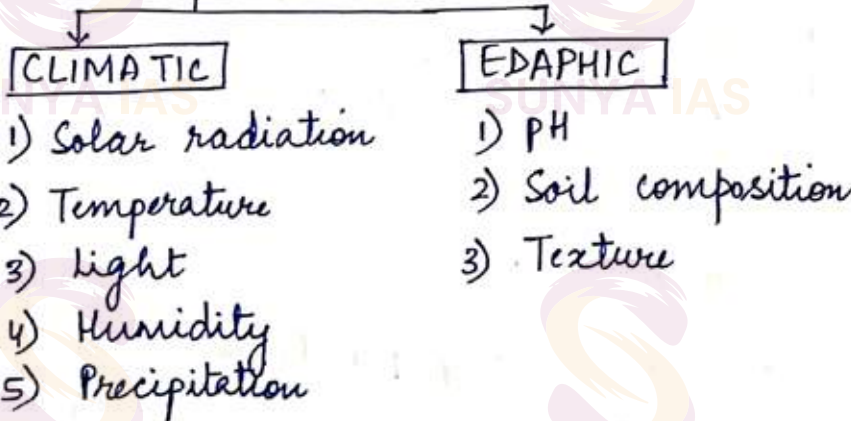 CLIMATIC
1) Solar radiation
2) Temperature
3) Light
4) Humidity
5) Precipitation
EDAPHIC
1) pH
2) Soil composition
3) Texture
SUNYA IAS
SUNYA IAS